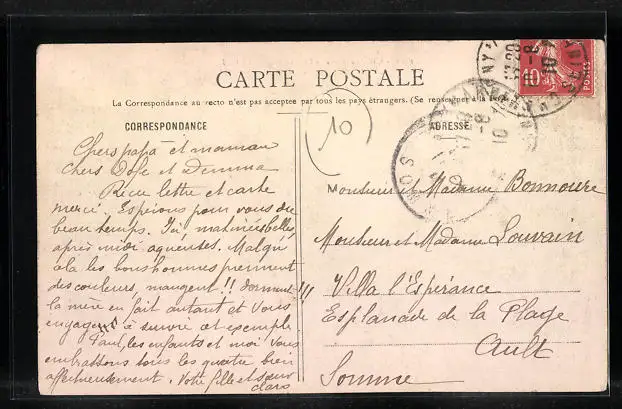 CARTE POSTALE
La Correspondance au recto n'est pas acceptée par tous les pays étrangers. (Se renseigner à la
CORRESPONDANCE
ADRESSE
10
10
POSTES
Chers papa et maman
chers et
Reçu lettre et carte
merci. Espérons pour vous du
beau temps. Ici matinées belles
après midi aqueuses. Malgré
cela les bonshommes prennent
des couleurs, mangent!! dorment!!!
la mère en fait autant et vous
engage à suivre cet exemple
Paul, les enfants et moi vous
embrassons tous les quatre bien
affectueusement. Votre fille et sœur
Monsieur et Madame Bonnoure
Monsieur et Madame Louvain
Villa l'Espérance
Esplanade de la Plage
Ault
Somme